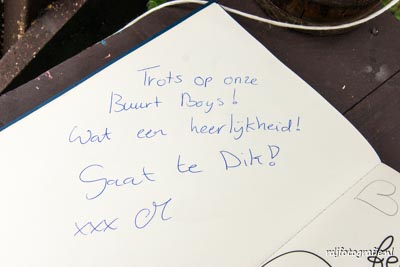 Trots op onze
Buurt Boys!
Wat een heerlijkheid!
Gaat te Dik!
xxx
rdjfotografie.nl